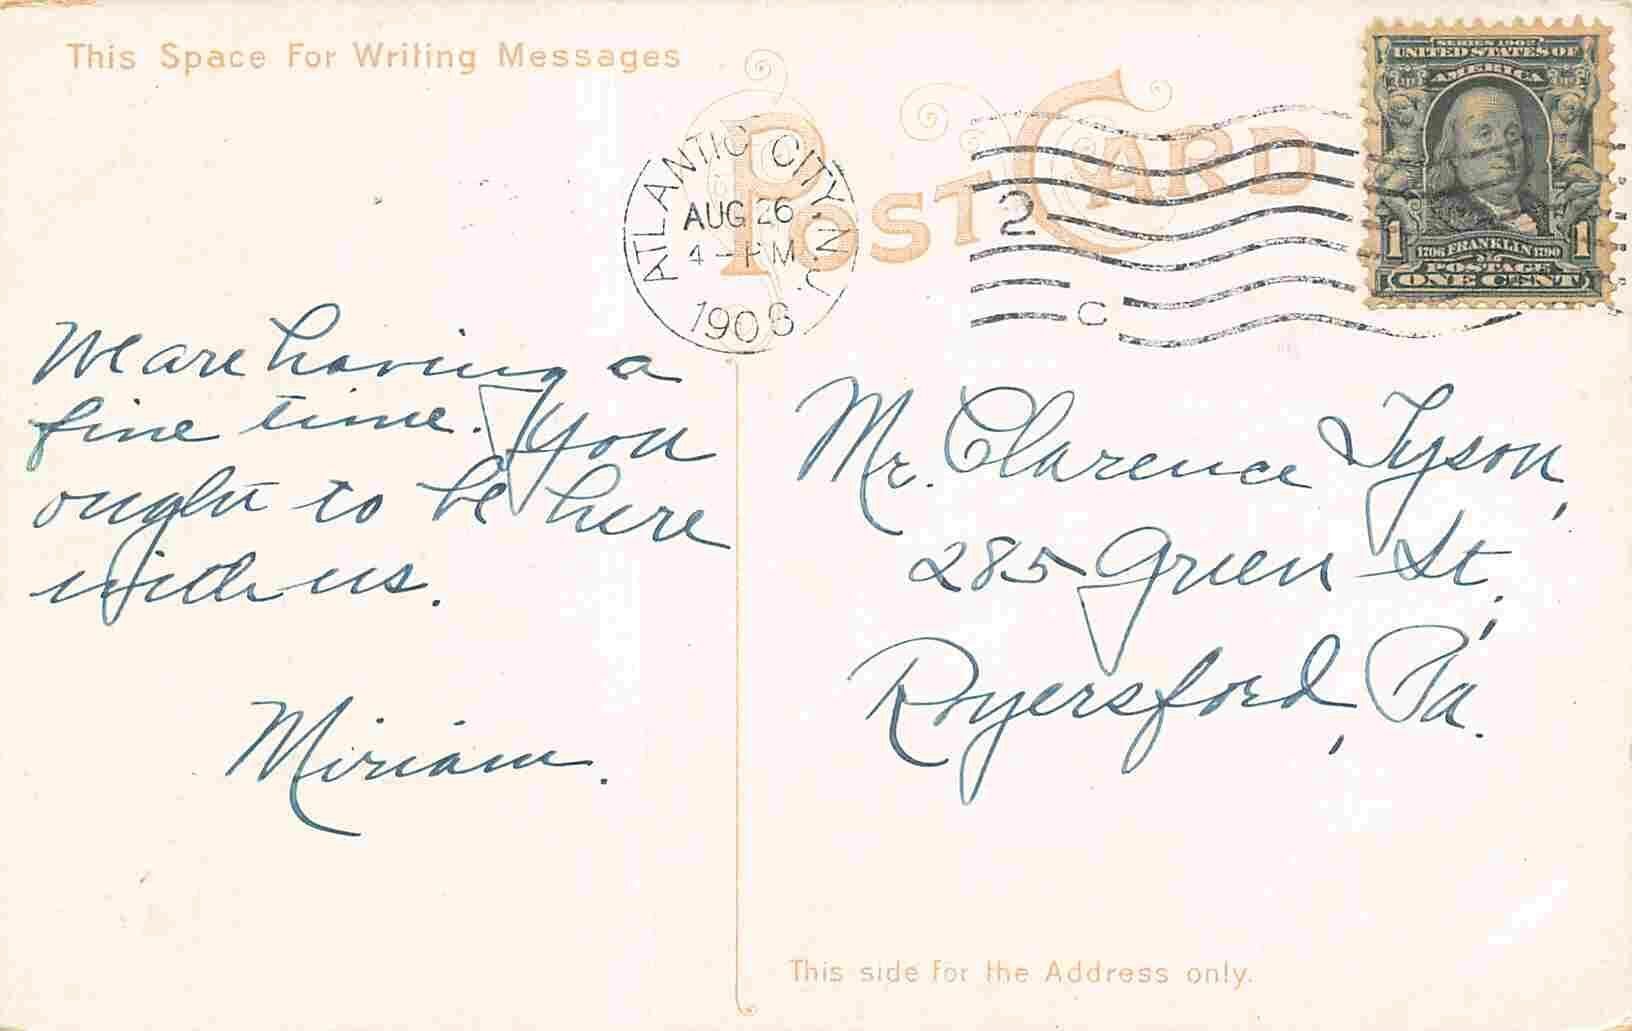 This Space For Writing Messages
POST CARD
SERIES 1902
UNITED STATES OF
AMERICA
1 1
1706 FRANKLIN 1790
POSTAGE
ONE CENT
ATLANTIC CITY, N.J.
AUG 26
4 - PM
1908
2
C
We are having a
fine time. You
ought to be here
with us.
Miriam.
Mr. Clarence Tyson,
285 Green St.,
Royersford, Pa.
This side for the Address only.